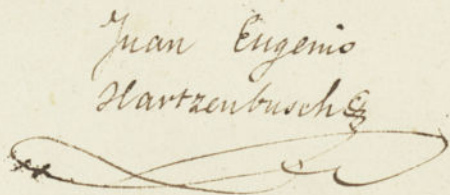 Juan Eugenio
Hartzenbusch